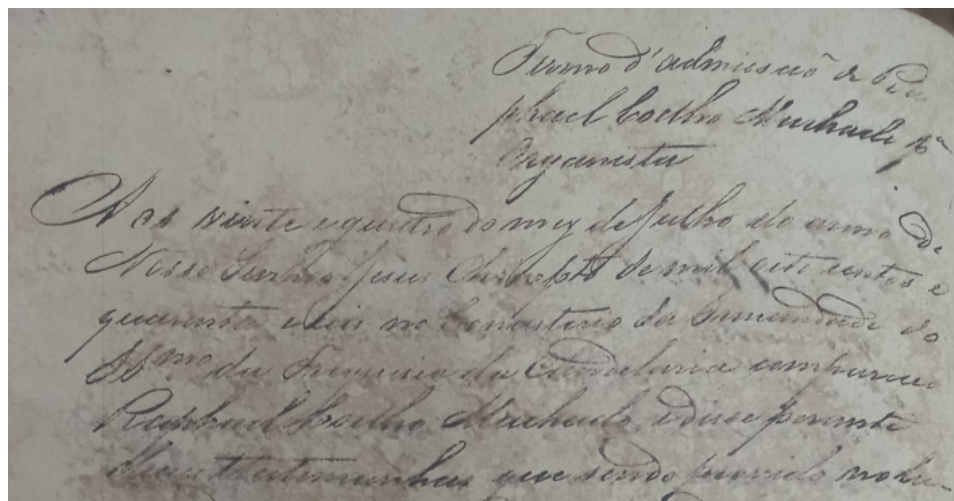 Termo d'admissaõ de Ra
phael Coelho Machado pª
Organista
Aos vinte e quatro do mez de Julho do anno de
Nosso Senhor Jesus Christo de mil oito centos e
quarenta e seis no Consistorio da Irmandade do
SSmo da Freguesia da Candelaria compareceo
Raphael Coelho Machado, e disse perante
as testemunhas que sendo provido no lu-